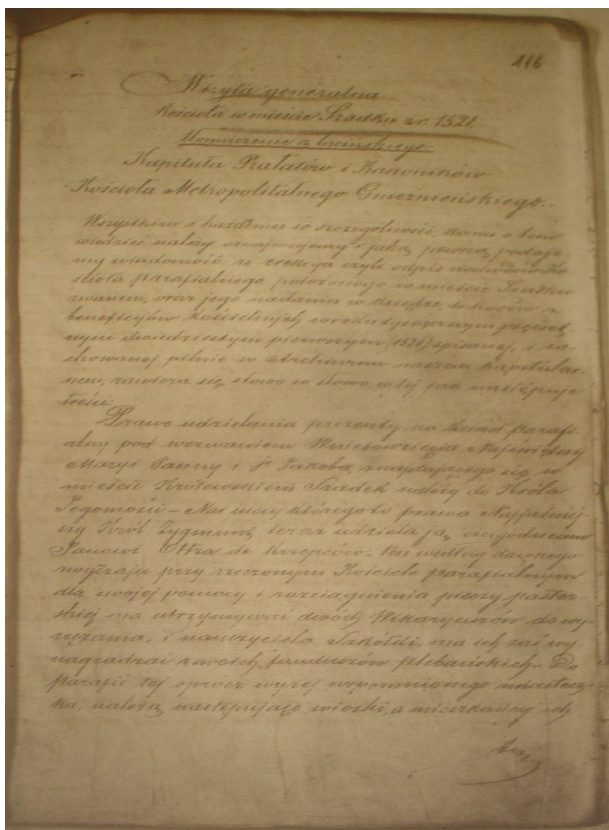 116
Wizyta generalna
Kościoła w mieście Szadku z r. 1521
tłomaczenie z łacińskiego.
Kapituła Prałatów i Kanoników
Kościoła Metropolitalnego Gnieźnieńskiego.
Wszystkim i każdemu w szczególności, komu o tem
wiedzieć należy oznajmujemy i jaką pewną podaje-
my wiadomość, że erekcya czyli odpis dochodów Ko-
ścioła parafialnego, położonego w mieście Szadku
zwanem, oraz jego nadania w księdze dochodów z
beneficyjów Kościelnych w roku tysiącznym pięćset-
nym dwudziestym pierwszym (1521) spisanej, i za-
chowanej pilnie w Archiwum naszem kapitular-
nem, zawiera się, słowo w słowo, w tej jak następuje
treści:
Prawo udzielania prezenty na kościół parafi-
alny pod wezwaniem Wniebowzięcia Najświętszej
Maryi Panny i Śo Jakóba, znajdującego się w
mieście Królewskiem Szadek należy do Króla
Jegomości – Na mocy którego to prawa Najjaśniej-
szy Król Zygmunt, teraz udziela ją,
Panowi do Ten według dawnego
zwyczaju przy rzeczonym Kościele parafialnym
dla swojej pomocy i rozciągnienia pieczy paster-
skiej ma utrzymywać dwóch Wikaryuszów do wy-
ręczania, i nauczyciela Szkółki, ma ich zaś wy-
nagradzać z swoich funduszów plebańskich – Do
parafii tej oprócz wyżej wspomnionego miastecz-
ka, należą następujące wioski, a mieszkańcy ich